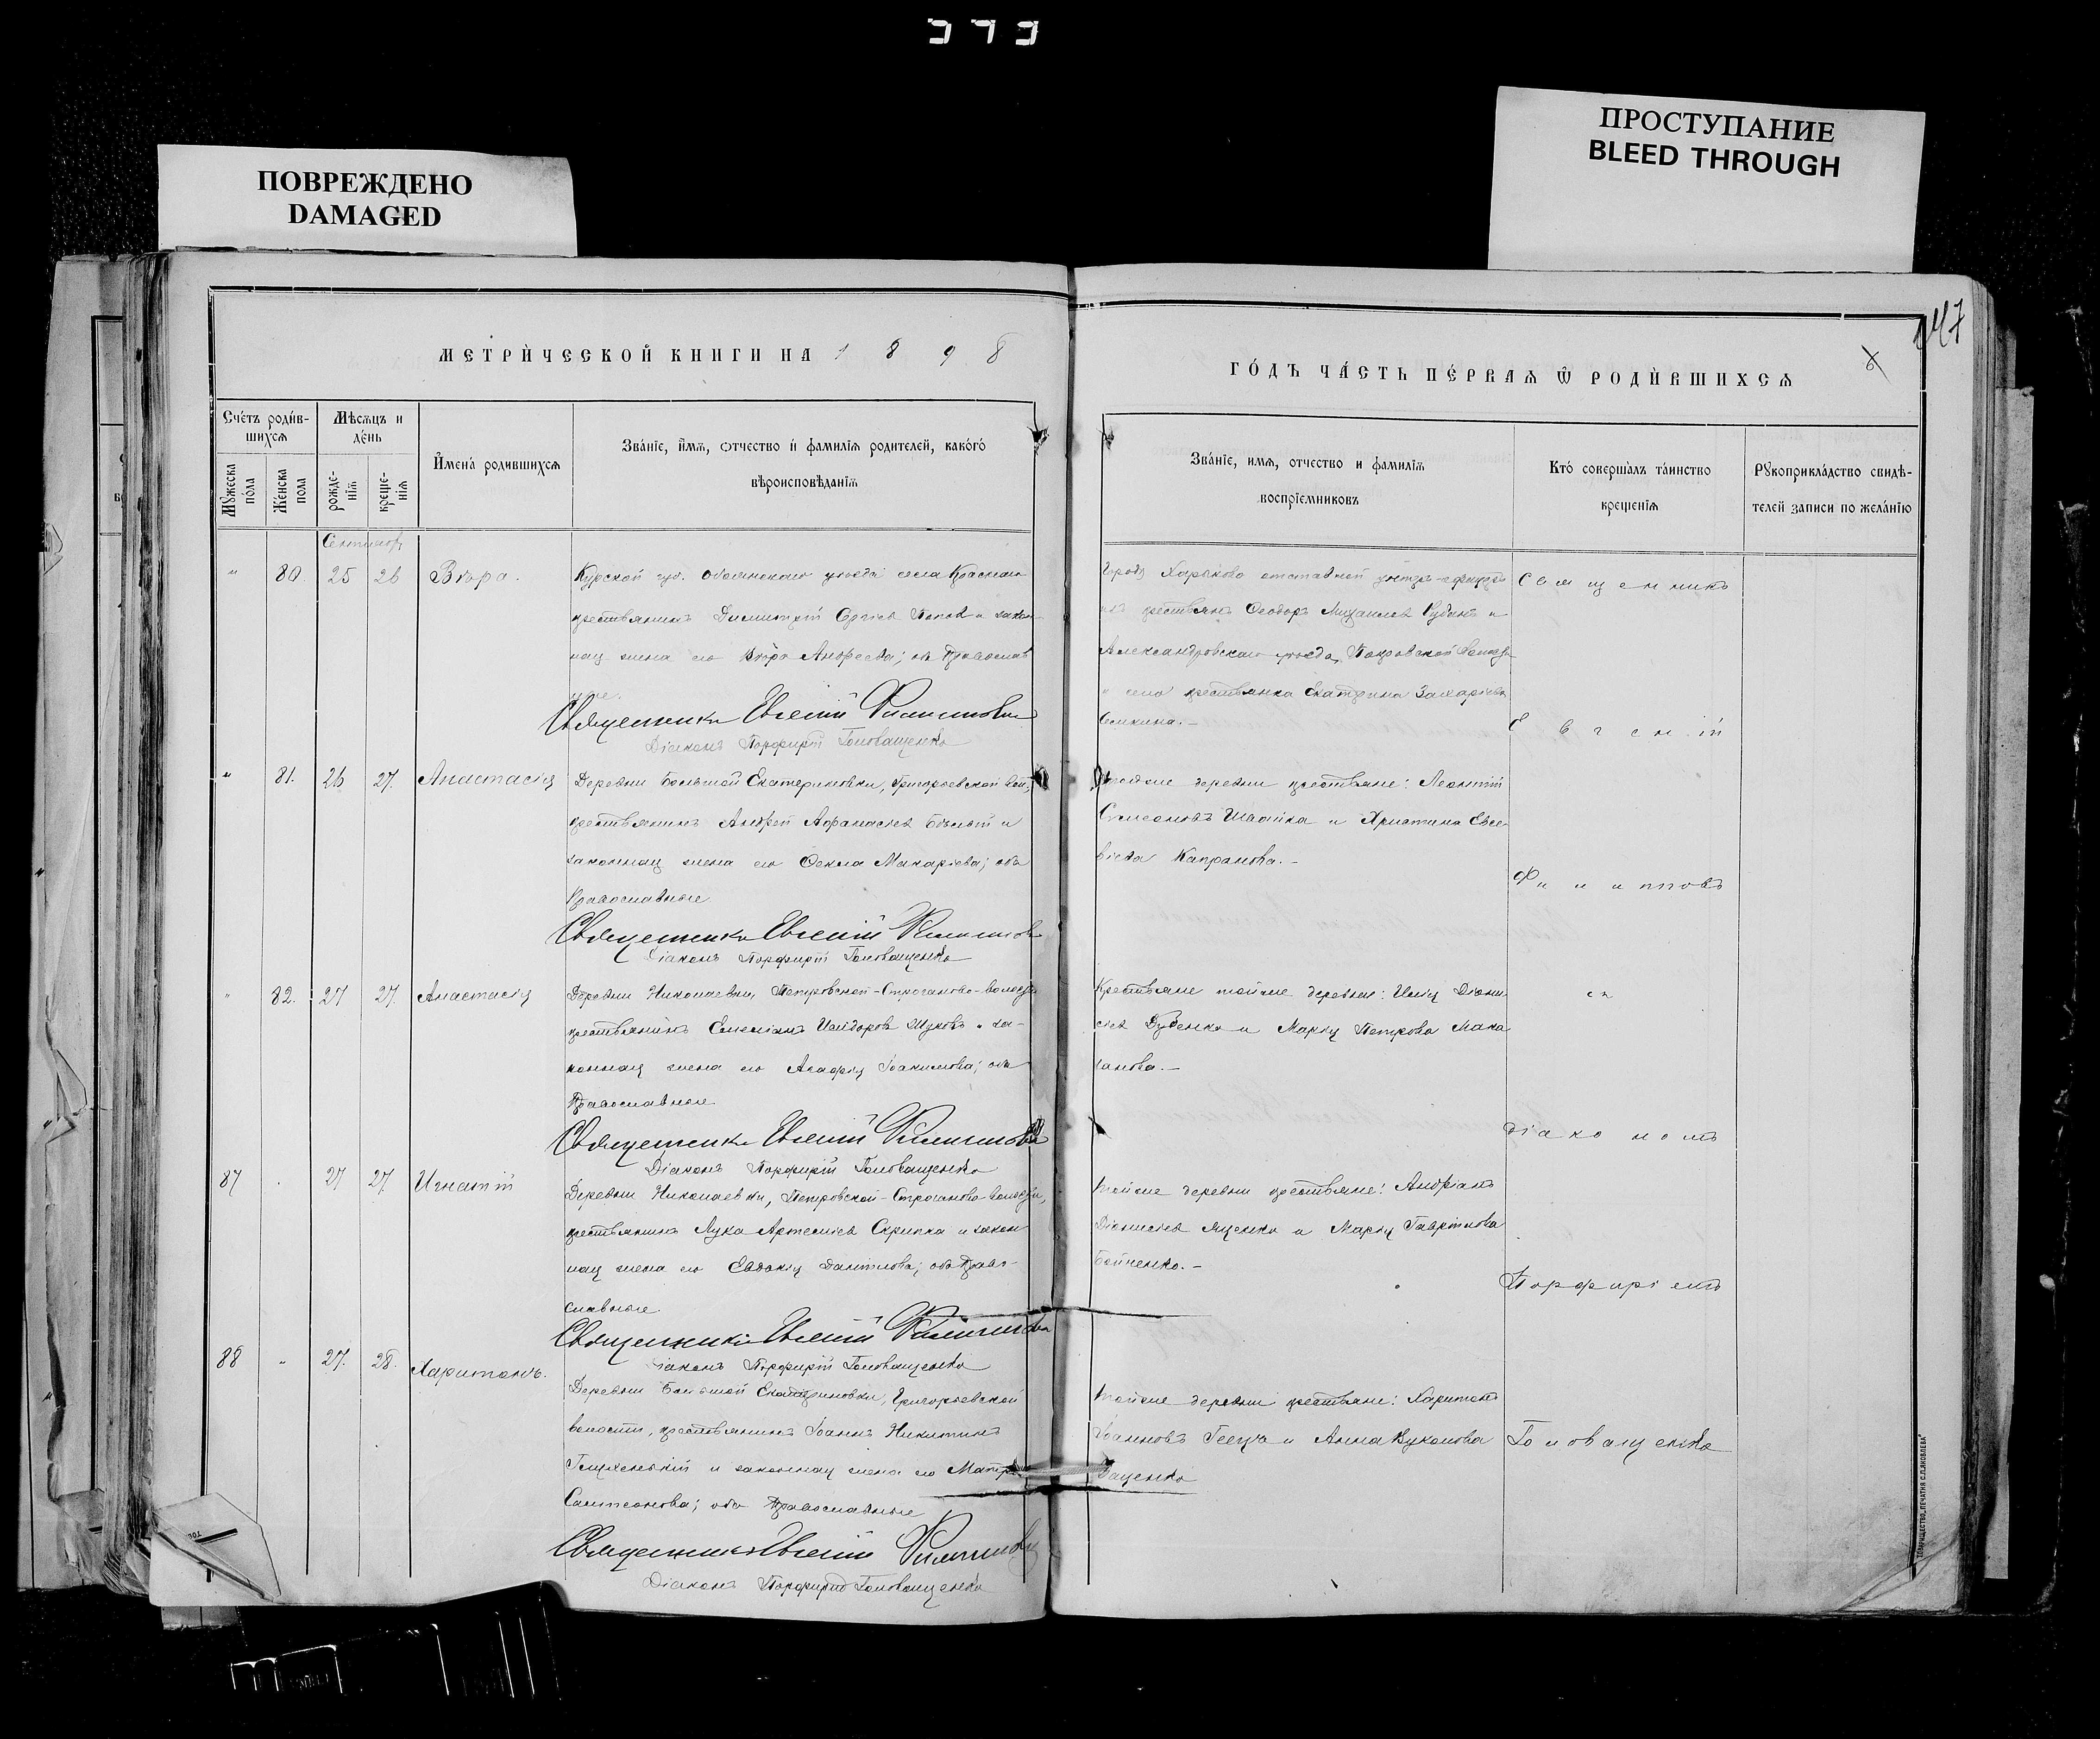 ПОВРЕЖДЕНО
DAMAGED
ПРОСТУПАНИЕ
BLEED THROUGH
147
МЕТРИЧЕСКОЙ КНИГИ НА 1898
ГОДЪ ЧАСТЬ ПЕРВАЯ Ѿ РОДИВШИХСЯ
8
Счетъ родив-
шихся
Мѣсяцъ и
день
Мужеска
пола
Женска
пола
рожде-
нія
креще-
нія
Имена родившихся
Званіе, имя, отчество и фамилія родителей, какого
вѣроисповѣданія
Званіе, имя, отчество и фамилія
воспріемниковъ
Кто совершалъ таинство
крещенія
Рукоприкладство свидѣ-
телей записи по желанію
Сентябрь
" 80. 25 26 Вѣра.
Курской губ. Обоянскаго уѣзда села Краснаго
крестьянинъ Димитрій Сергіевъ Поповъ и закон-
ная жена его Вѣра Андреева; оба православ
ные.
Священникъ Евгеній Филипповъ
Діаконъ Порфирій Головащенко
Города Харькова отставной унтеръ-офицеръ
изъ крестьянъ Ѳеодоръ Михаиловъ и
Александровскаго уѣзда, Покровской волости
и села крестьянка Екатерина Захаріева
" 81. 26 27. Анастасія
Деревни Большой Екатериновки, Григорьевской вол.,
крестьянинъ Андрей Аѳанасіевъ Бѣлый и
законная жена его Ѳекла Макаріева; оба
Православные
Священникъ Евгеній Филипповъ
Діаконъ Порфирій Головащенко
тойже деревни крестьяне: Леонтій
Симеоновъ и Христина Евсе-
віева Капранова.-
" 82. 27 27. Анастасія
Деревни Николаевки, Петровской-Строганово-волости
крестьянинъ Емеліанъ Исидоровъ Жуковъ и за-
конная жена его Агафія Іоакимова; оба
Православные
Священникъ Евгеній Филипповъ
Діаконъ Порфирій Головащенко
Крестьяне тойже деревни: Илія Діони-
сіевъ и Марія Петрова
87 " 27 27. Игнатій
Деревни Николаевки, Петровской-Строганово-волости,
крестьянинъ Лука Артеміевъ Скрипка и закон
ная жена его Евдокія Даніилова; оба Право-
славные
Священникъ Евгеній Филипповъ
Діаконъ Порфирій Головащенко
тойже деревни крестьяне: Андріанъ
Діонисіевъ Яценко и Марія Гавріилова
Бойченко.-
88 " 27. 28. Харитонъ.
Деревни Большой Екатериновки, Григорьевской
волости, крестьянинъ Іоаннъ Никитинъ
и законная жена его
Сампсонова; оба Православные
Священникъ Евгеній Филипповъ
Діаконъ Порфирій Головащенко
тойже деревни крестьяне: Харитонъ
Іоанновъ и Анна Вуколова
Священникъ
Евгеній
Филипповъ
съ
діакономъ
Порфиріемъ
Головащенко
ТОВАРИЩЕСТВО „ПЕЧАТНЯ С.П.ЯКОВЛЕВА“